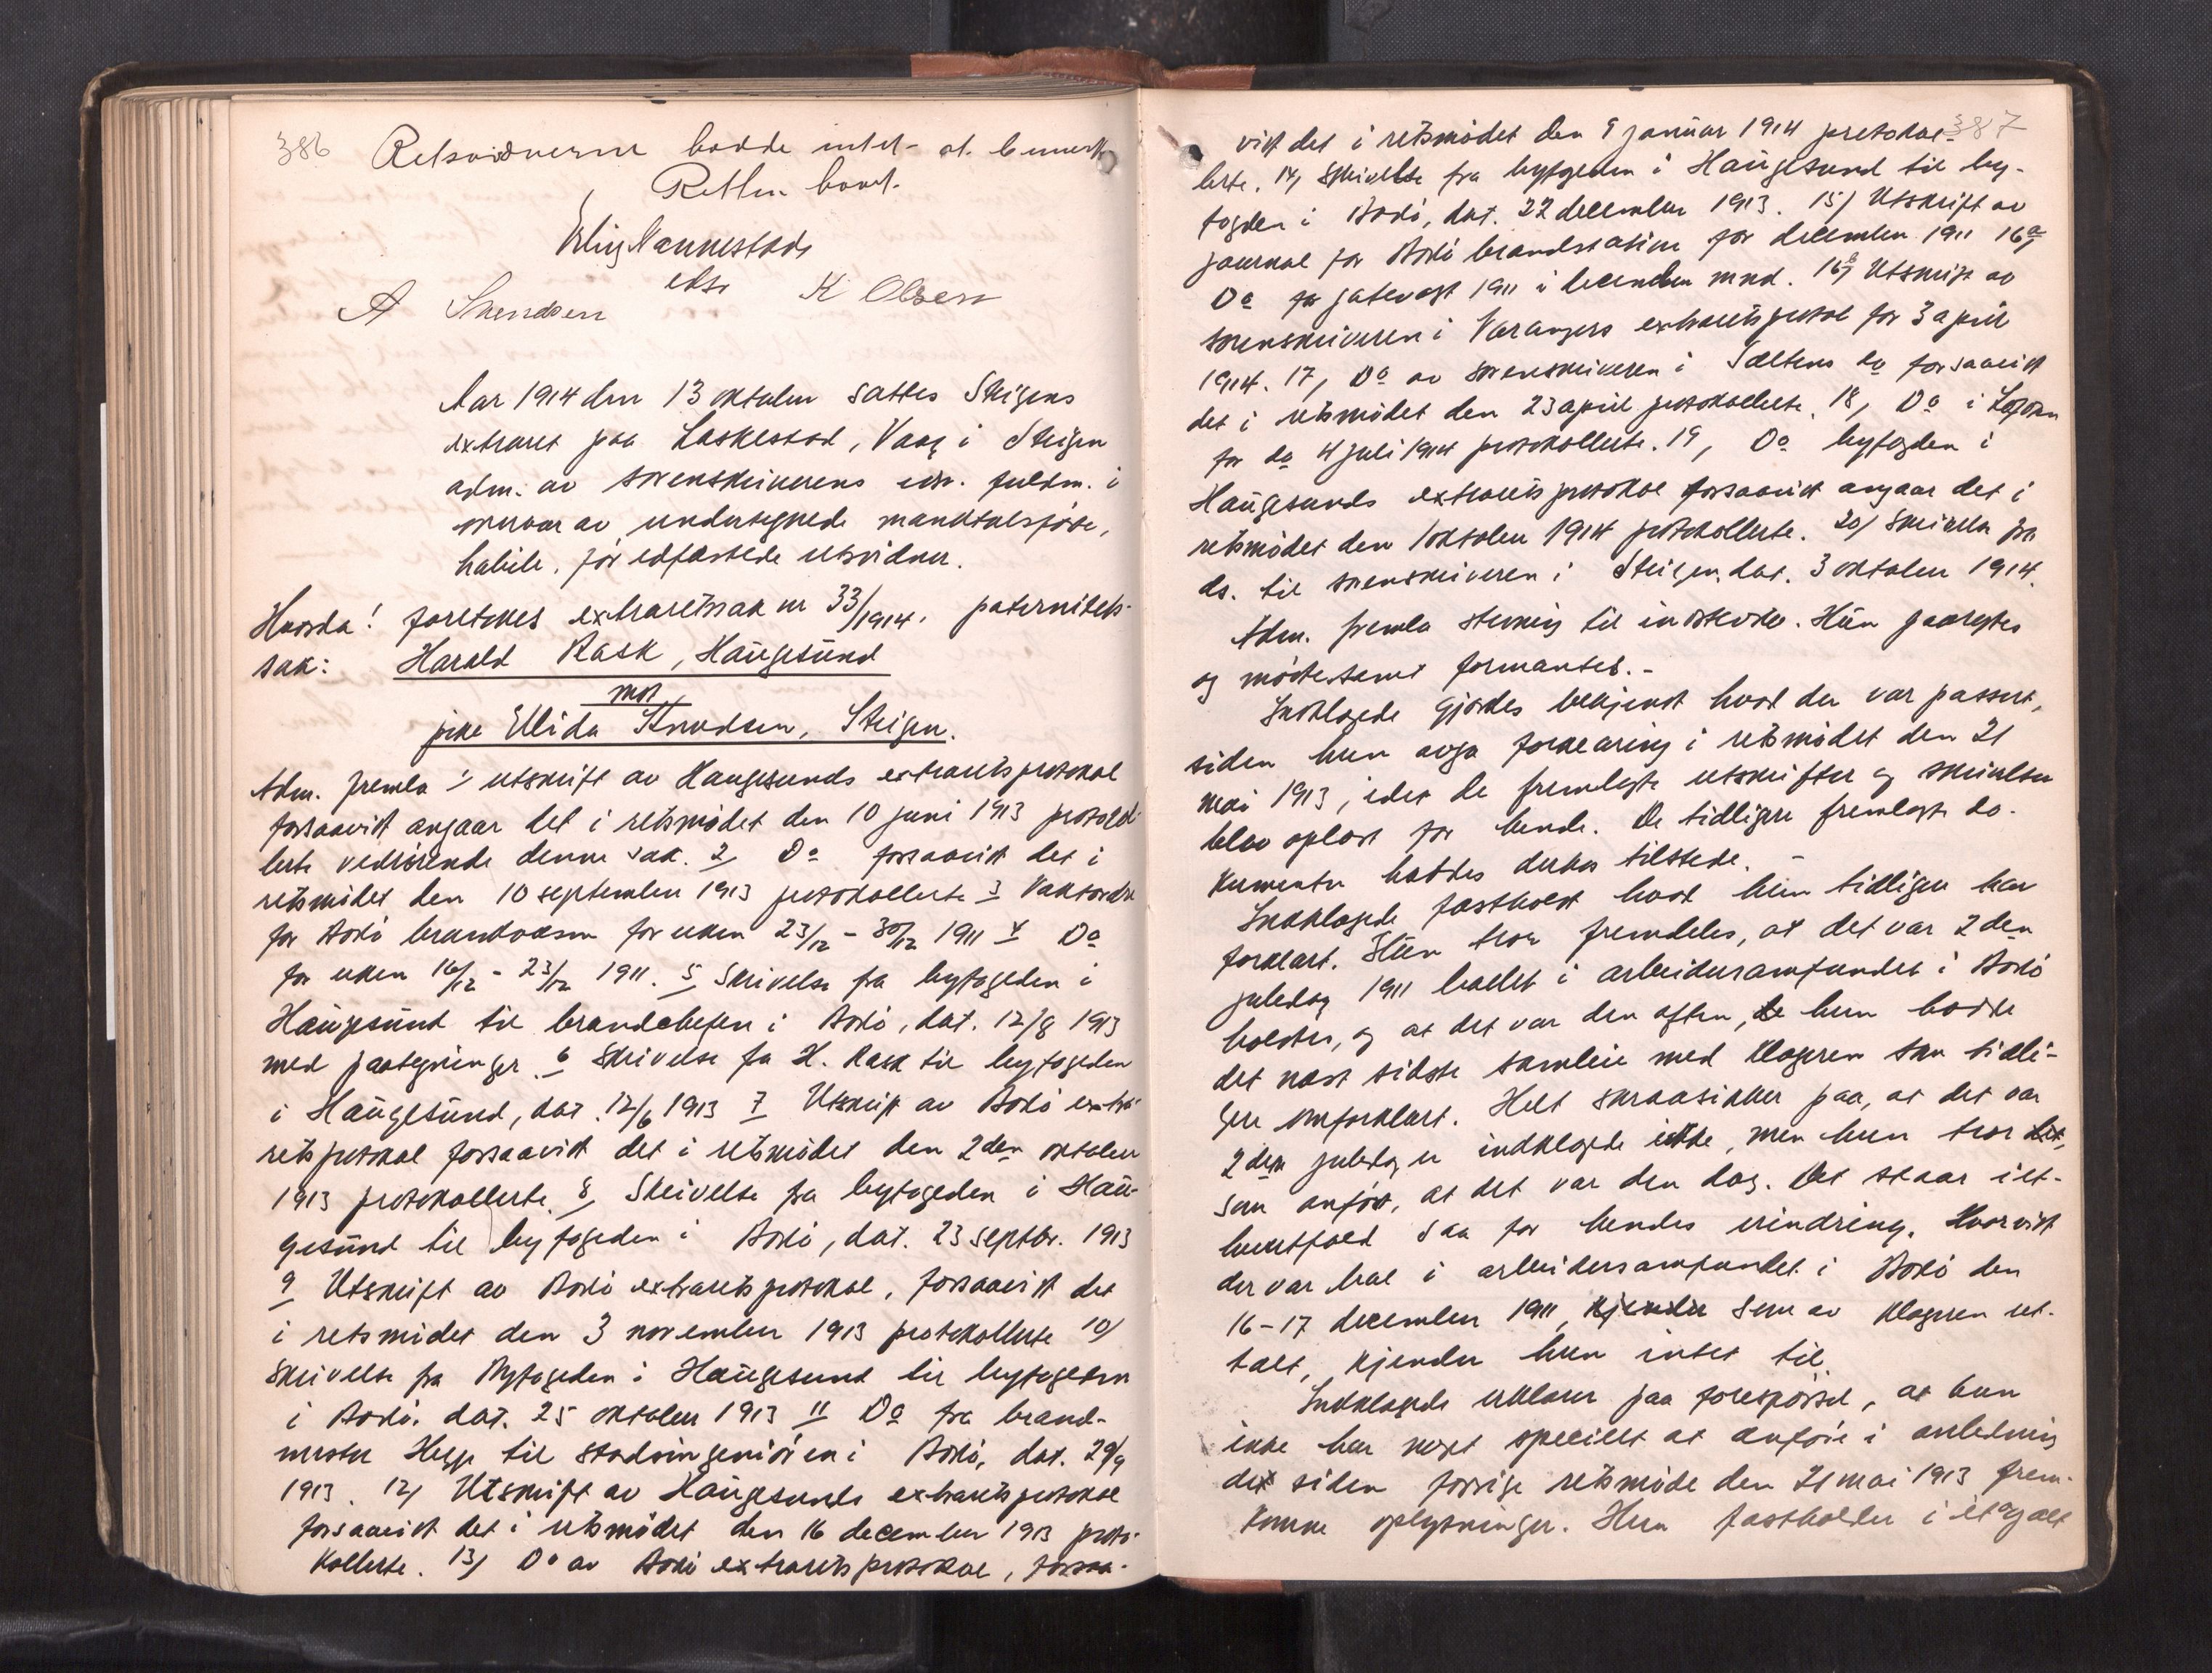 386
Retsvidnerne hadde intet at bemerke
Retten hævet.
Erling Nannestads
eksr K Olsen
A Svendsen
Aar 1914 den 13 oktober sattes Steigens
extraret paa Laskestad, Vaag i Steigen
adm. av sorenskriverens edsv. fuldm. i
overvær av undertegnede mandtalsførte,
habile, før edfæstede retsvidner.
Hvorda! foretokes extraretssak nr 33/1914, paternitets-
sak: Harald Rask, Haugesund
mot
pike Ellida Knudsen, Steigen.
Adm. fremla 1/ utskrift av Haugesunds extraretsprotokol
forsaavidt angaar det i retsmødet den 10 juni 1913 protokol-
lerte vedrørende denne sak. 2/ Do forsaavidt det i
retsmødet den 10 september 1913 protokollerte 3 Vaktordre
for Bodø brandvæsen for uken 23/12 - 30/12 1911 4 Do
for uken 16/12 - 23/12 1911. 5/ Skrivelse fra byfogeden i
Haugesund til brandchefen i Bodø, dat. 12/8 1913
med paategninger. 6 Skrivelse fra H. Rask til byfogeden
i Haugesund, dat. 12/6 1913 7 Utskrift av Bodø extra-
retsprotokol forsaavidt det i retsmødet den 2den oktober
1913 protokollerte. 8/ Skrivelse fra byfogeden i Hau-
gesund til byfogeden i Bodø, dat. 23 septbr. 1913
9 Utskrift av Bodø extraretsprotokol, forsaavidt det
i retsmødet den 3 november 1913 protokollerte 10/
Skrivelse fra Byfogeden i Haugesund til byfogeden
i Bodø. dat. 25 oktober 1913 11 Do fra brand-
mester Hegge til stadsingeniøren i Bodø, dat. 29/9
1913. 12/ Utskrift av Haugesunds extraretsprotokol
forsaavidt det i retsmødet den 16 december 1913 proto-
kollerte. 13/ Do av Bodø extraretsprotokol, forsaa-
387
vidt det i retsmødet den 9 januar 1914 protokol-
lerte. 14/ Skrivelse fra byfogden i Haugesund til by-
fogden i Bodø, dat. 22 december 1913. 15/ Utskrift av
journal for Bodø brandstation for december 1911 16a/
Do for gatevagt 1911 i december mnd. 16b/ Utskrift av
sorenskriveren i Varangers extraretsprotol for 3 april
1914. 17, Do av sorenskriveren i Saltens do forsaavidt
det i retsmødet den 23 april protokollerte. 18, Do i Lofoten
for do 4 juli 1914 protokollerte. 19, Do byfogden i
Haugesunds extraretsprotokol forsaavidt angaar det i
retsmødet den 1 oktober 1914 protokollerte. 20/ Skrivelse fra
ds. til sorenskriveren i Steigen, dat. 3 oktober 1914.
Adm. fremla stevning til indklagede. Hun paaroptes
og møtte samt formantes. -
Indklagede gjordes bekjendt hvad der var passert,
siden hun avga forklaring i retsmødet den 21
mai 1913, idet de fremlagte utskrifter og skrivelser
blev oplæst for hende. De tidligere fremlagte do-
kumenter hadtes derhos tilstede. -
Indklagede fastholdt hvad hun tidligere har
forklart. Hun tror fremdeles, at det var 2den
juledag 1911 ballet i arbeidersamfundet i Bodø
holdtes, og at det var den aften, hun hadde
det næst sidste samleie med klageren som tidli-
gere omforklart. Helt skraasikker paa, at det var
2den juledag er indklagede ikke, men hun tror
som anført, at det var den dag. Det staar i et-
hvertfald saa for hendes erindring. Hvorvidt
der var bal i arbeidersamfundet i Bodø den
16-17 december 1911, kjender som av klageren ut-
talt, kjender hun intet til.
Indklagede erklærer paa forespørsel, at hun
ikke har noget specielt at anføre i anledning
det siden forrige retsmøde den 21 mai 1913 frem-
komne oplysninger. Hun fastholder i et og alt